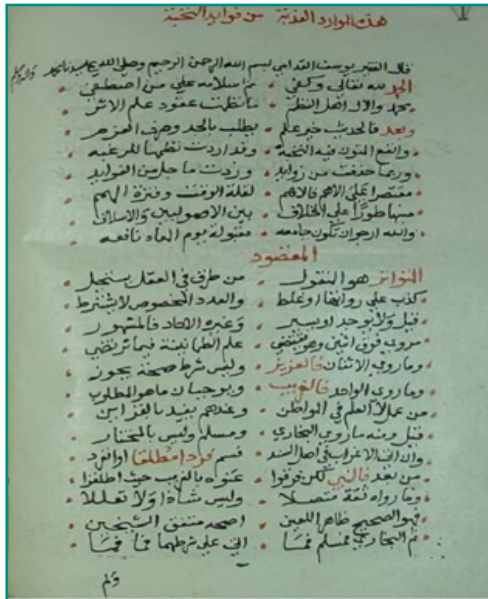 هذه الموارد العذبة من فوائد النخبة
قال الفقير يوسف القدامي بسم الله الرحمن الرحيم وصلى الله
الحمد لله تعالى وكفى • ثم سلامه على من اصطفى
محمد والال اهل النظر • ما نظمت عقود علم الاثر
وبعد فالحديث خير علم • يطلب بالجد وصرف
وانفع المتون فيه النخبة • وقد اردت نظمها للرغبه
وربما حذفت من زوايد • وزدت ما حل من الفوايد
مقتصرا على الاهم فالاهم • لقلة الوقت وفترة الهمم
منبها طورا على الخلاف • بين الاصوليين والاسلاف
والله ارجو ان تكون جامعه • مقبولة يوم المعاد نافعه
المقصود
التواتر هو المنقول • من طرق في العقل يستحل
كذب على رواتها او غلط • والعدد المخصوص لا يشترط
قيل ولا يوجد او يسير • وغيره الاحاد فالمشهور
مروي فوق اثنين وهو يقتضي • علم الطمانينة فيما نرتضي
وما روى الاثنان فالعزيز • وليس شرط صحة يجوز
وما روى الواحد فالغريب • ويوجبان ما هو المطلوب
من عمل لا العلم في المواطن • وعندهم يفيد بالقراين
قيل ومنه ما روى البخاري • ومسلم وليس بالمختار
وان اتى الاغراب في اصل السند • قسم فردا مطلقا او انفرد
من بعد فالنسبي لكن عرفوا • عنوه بالغريب حيث اطلقوا
وما رواه ثقة متصلا • وليس شاذا ولا تعللا
فهو الصحيح ظاهر اللعين • اصحه متفق الشيخين
ثم البخاري فمسلم فما • اتى على شرطهما فما فما